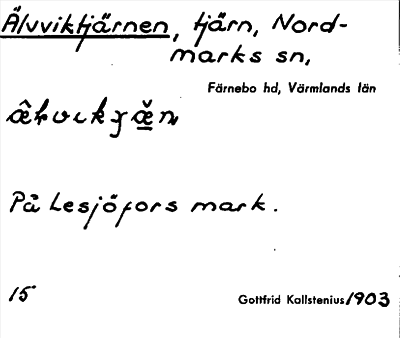 Älvviktjärnen, tjärn, Nord-
marks sn,
Färnebo hd, Värmlands län
På Lesjöfors mark.
15 Gottfrid Kallstenius 1903